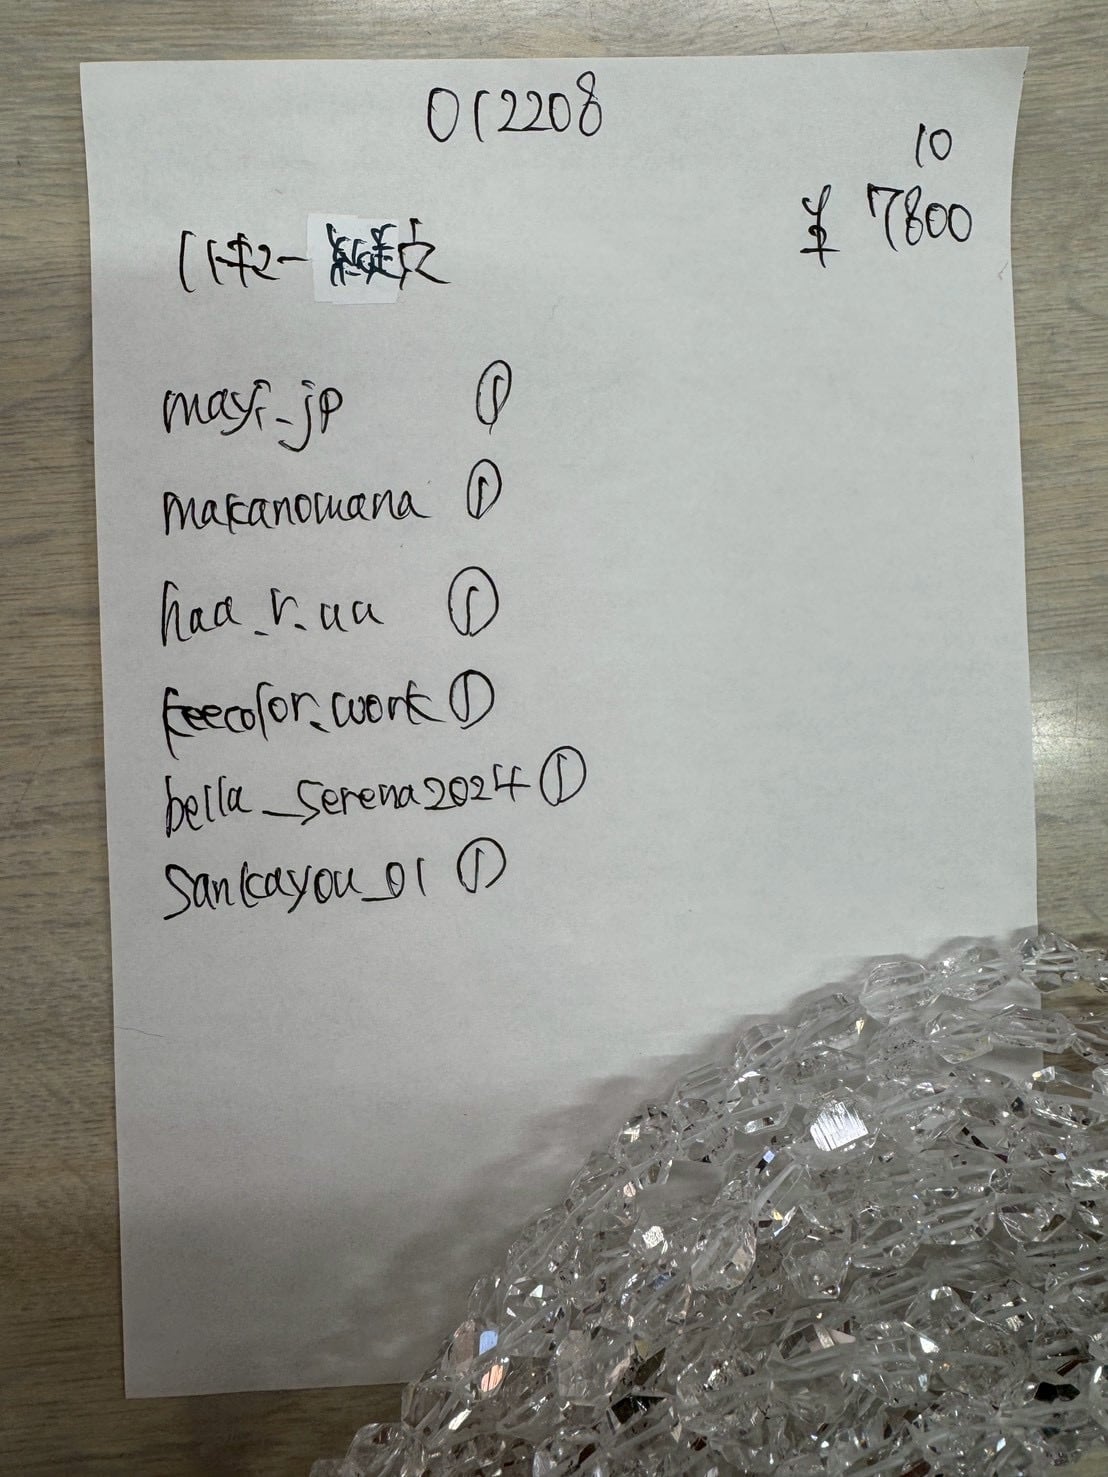 012208
10
¥ 7800
mayi_jp ①
makanowana ①
haa_r_uu ①
keecolor_work ①
bella_serena2024 ①
sankayou_01 ①